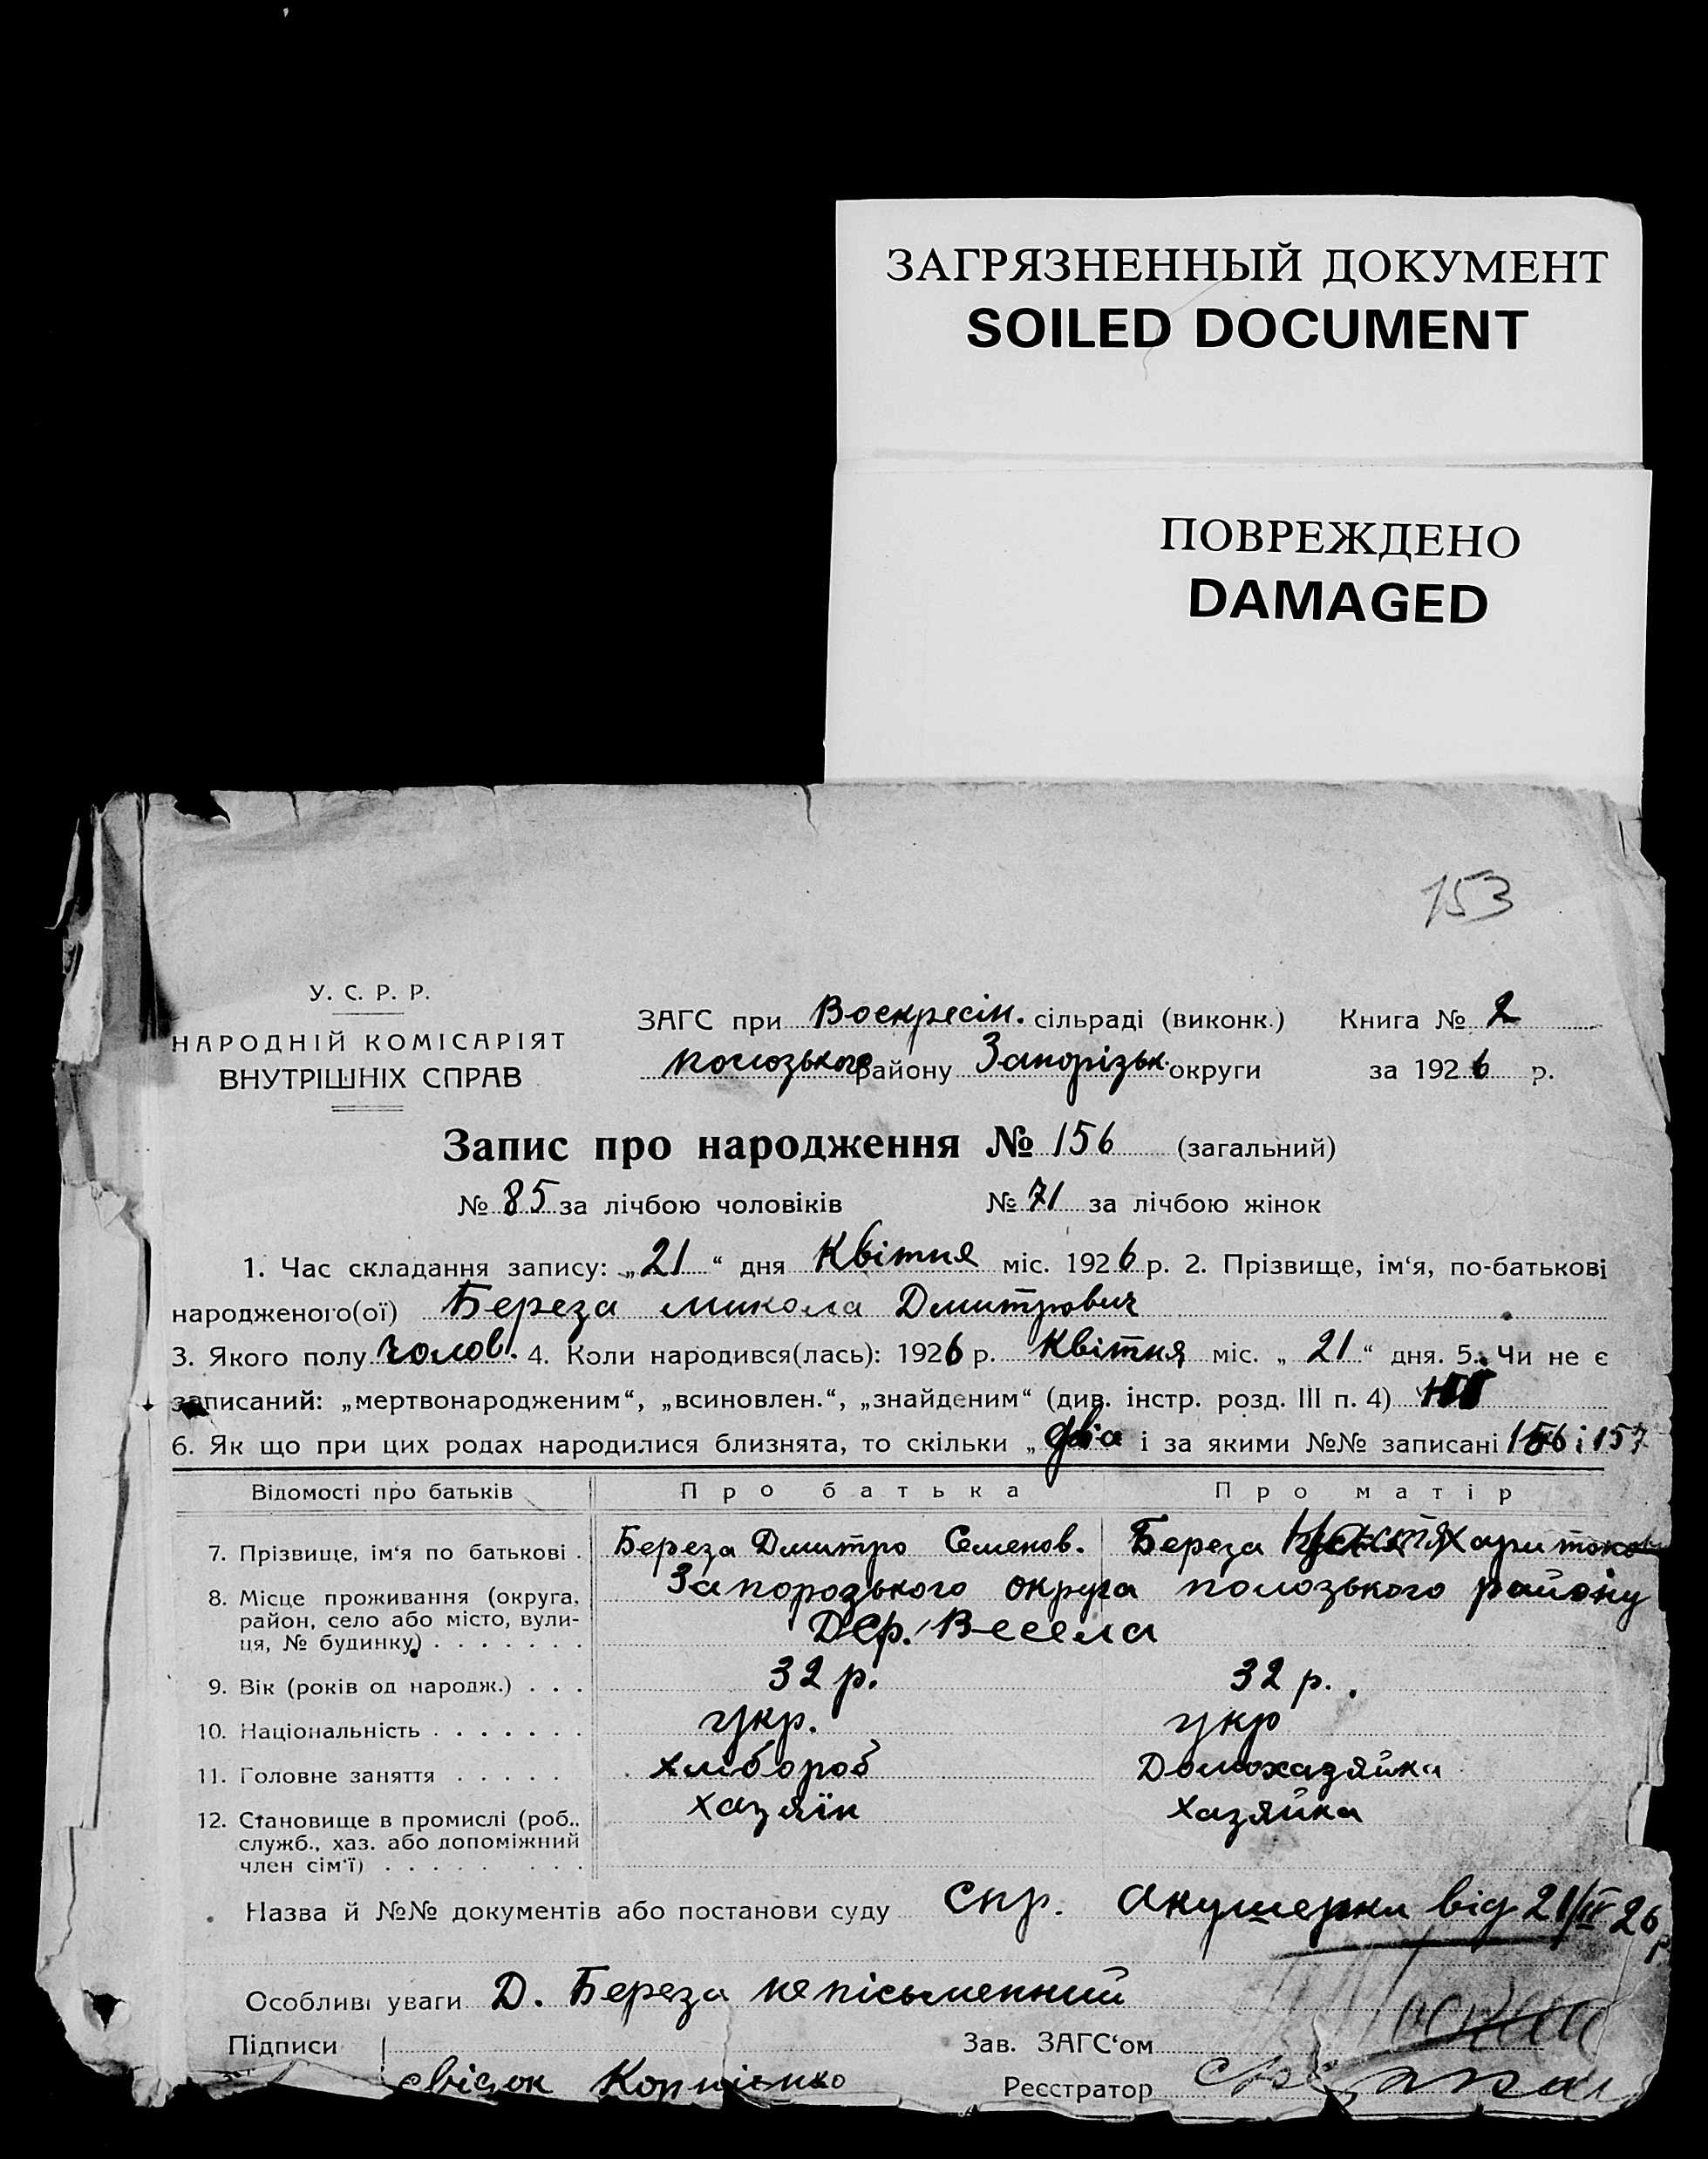 ЗАГРЯЗНЕННЫЙ ДОКУМЕНТ
SOILED DOCUMENT
ПОВРЕЖДЕНО
DAMAGED
153
У. С. Р. Р.
НАРОДНІЙ КОМІСАРІЯТ
ВНУТРІШНІХ СПРАВ
ЗАГС при Воскресін. сільраді (виконк.) Книга № 2
пологзького району Запорізьк. округи за 1926 р.
Запис про народження № 156 (загальний)
№ 85 за лічбою чоловіків № 71 за лічбою жінок
1. Час складання запису: „21“ дня Квітня міс. 1926 р. 2. Прізвище, ім‘я, по-батькові
народженого(ої) Береза Микола Дмитрович
3. Якого полу чолов. 4. Коли народився(лась): 1926 р. Квітня міс. „21“ дня. 5. Чи не є
записаний: „мертвонародженим“, „всиновлен.“, „знайденим“ (див. інстр. розд. III п. 4)
6. Як що при цих родах народилися близнята, то скільки „двіа і за якими №№ записані 156 і 157
Відомості про батьків Про батька Про матір
7. Прізвище, ім‘я по батькові . Береза Дмитро Семенов. Береза
8. Місце проживання (округа, район, село або місто, вулиця, № будинку) . . . . . . . Запорозького округа полозького району
Дер. Весела
9. Вік (років од народж.) . . . 32 р. 32 р.
10. Національність . . . . . . . укр. укр
11. Головне заняття . . . . . хлібороб Домохазяйка
12. Становище в промислі (роб., служб., хаз. або допоміжний член сім‘ї) . . . . . . . . хазяїн хазяйка
Назва й №№ документів або постанови суду спр. акушерки від 21/IV 26 р
Особливі уваги Д. Береза непісьменний
Підписи Зав. ЗАГС‘ом
свідок Корнієнко Реєстратор